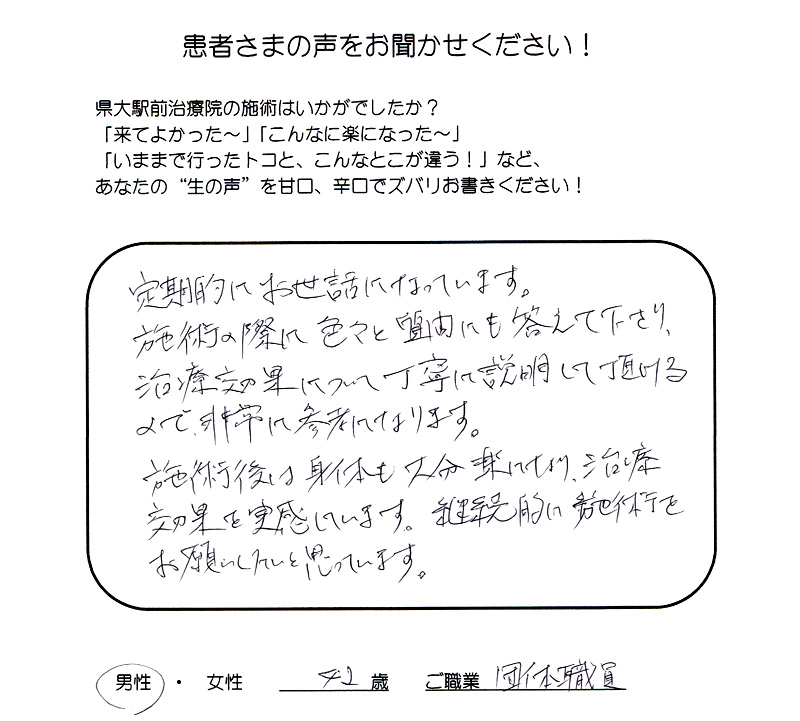 患者さまの声をお聞かせください！
県大駅前治療院の施術はいかがでしたか？
「来てよかった〜」「こんなに楽になった〜」
「いままで行ったトコと、こんなとこが違う！」など、
あなたの“生の声”を甘口、辛口でズバリお書きください！
定期的にお世話になっています。
施術の際に色々と質問にも答えて下さり、
治療効果について丁寧に説明して頂ける
ので、非常に参考になります。
施術後は身体も大分楽になり、治療
効果を実感しています。継続的に施術を
お願いしたいと思っています。
男性・女性 42歳 ご職業 団体職員